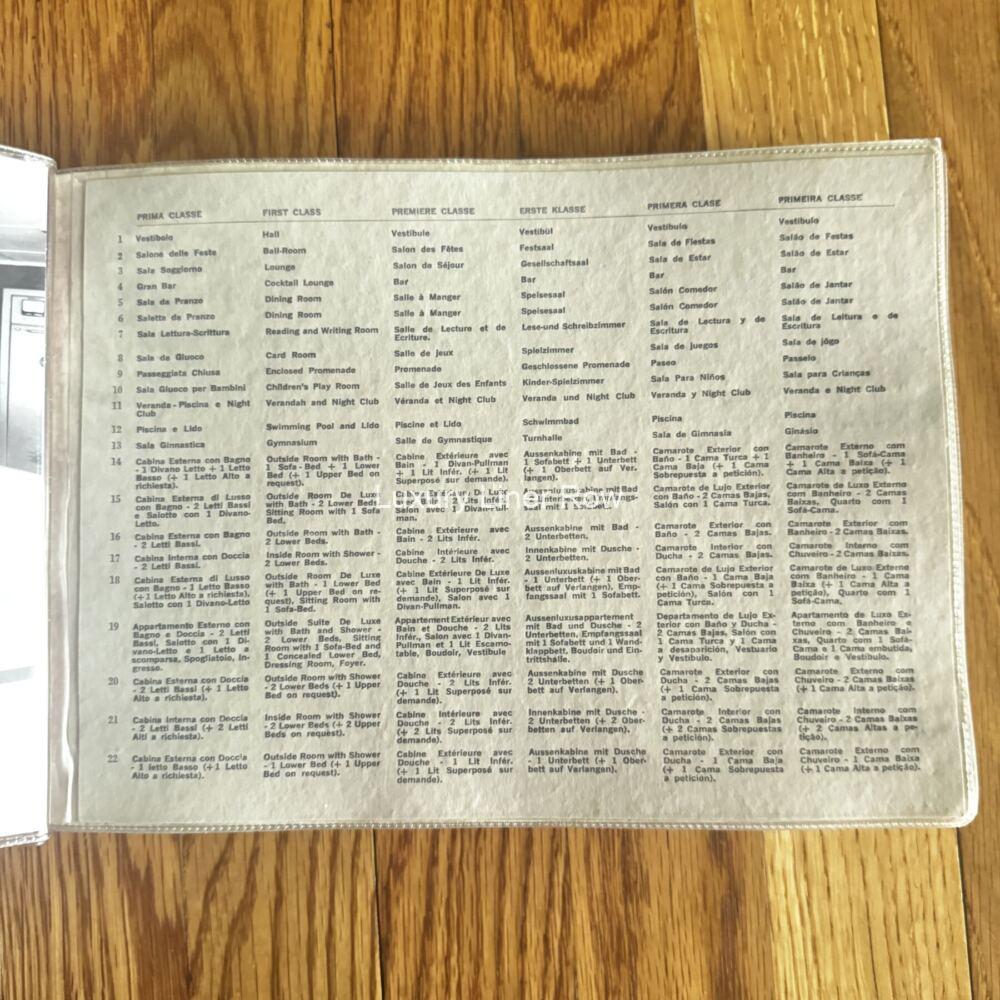 PRIMA CLASSE
FIRST CLASS
PREMIERE CLASSE
ERSTE KLASSE
PRIMERA CLASE
PRIMEIRA CLASSE
1 Vestibolo
Hall
Vestibule
Vestibül
Vestíbulo
Vestibulo
2 Salone delle Feste
Ball-Room
Salon des Fêtes
Festsaal
Sala de Fiestas
Salão de Festas
3 Sala Soggiorno
Lounge
Salon de Séjour
Gesellschaftsaal
Sala de Estar
Salão de Estar
4 Gran Bar
Cocktail Lounge
Bar
Bar
Bar
Bar
5 Sala da Pranzo
Dining Room
Salle à Manger
Speisesaal
Salón Comedor
Salão de Jantar
6 Saletta da Pranzo
Dining Room
Salle à Manger
Speisesaal
Salón Comedor
Salão de Jantar
7 Sala Lettura-Scrittura
Reading and Writing Room
Salle de Lecture et de
Ecriture.
Lese-und Schreibzimmer
Sala de Lectura y de
Escritura
Sala de Leitura e de
Escritura
8 Sala da Giuoco
Card Room
Salle de jeux
Spielzimmer
Sala de juegos
Sala de jôgo
9 Passeggiata Chiusa
Enclosed Promenade
Promenade
Geschlossene Promenade
Paseo
Passeio
10 Sala Giuoco per Bambini
Children's Play Room
Salle de Jeux des Enfants
Kinder-Spielzimmer
Sala Para Niños
Sala para Crianças
11 Veranda-Piscina e Night
Club
Verandah and Night Club
Véranda et Night Club
Veranda und Night Club
Veranda y Night Club
Veranda e Night Club
12 Piscina e Lido
Swimming Pool and Lido
Piscine et Lido
Schwimmbad
Piscina
Piscina
13 Sala Ginnastica
Gymnasium
Salle de Gymnastique
Turnhalle
Sala de Gimnasia
Ginásio
14 Cabina Esterna con Bagno
- 1 Divano Letto + 1 Letto
Basso (+ 1 Letto Alto a
richiesta).
Outside Room with Bath -
1 Sofa-Bed + 1 Lower
Bed (+ 1 Upper Bed on
request).
Cabine Extérieure avec
Bain - 1 Divan-Pullman
+ 1 Lit Infér. (+ 1 Lit
Superposé sur demande).
Aussenkabine mit Bad -
1 Sofabett + 1 Unterbett
(+ 1 Oberbett auf Ver.
langen).
Camarote Exterior con
Baño - 1 Cama Turca + 1
Cama Baja (+ 1 Cama
Sobrepuesta a petición).
Camarote Externo com
Banheiro - 1 Sofá-Cama
+ 1 Cama Baixa (+ 1
Cama Alta a petição).
15 Cabina Esterna di Lusso
con Bagno - 2 Letti Bassi
e Salotto con 1 Divano-
Letto.
Outside Room De Luxe
with Bath - 2 Lower Beds
Sitting Room with 1 Sofa
Bed,
Luxury Liner Row
Salon avec 1 Divan-Pull-
man.
Camarote de Lujo Exterior
con Baño - 2 Camas Bajas,
Salón con 1 Cama Turca.
Camarote de Luxo Externo
com Banheiro - 2 Camas
Baixas, Quarto com 1
Sofá-Cama.
16 Cabina Esterna con Bagno
- 2 Letti Bassi.
Outside Room with Bath -
2 Lower Beds.
Cabine Extérieure avec
Bain - 2 Lits Infér.
Aussenkabine mit Bad -
2 Unterbetten.
Camarote Exterior con
Baño - 2 Camas Bajas.
Camarote Externo com
Banheiro - 2 Camas Baixas.
17 Cabina Interna con Doccia
- 2 Letti Bassi.
Inside Room with Shower -
2 Lower Beds.
Cabine Intérieure avec
Douche - 2 Lits Infér.
Innenkabine mit Dusche -
2 Unterbetten.
Camarote Interior con
Ducha - 2 Camas Bajas.
Camarote Interno com
Chuveiro - 2 Camas Baixas.
18 Cabina Esterna di Lusso
con Bagno - 1 Letto Basso
(+ 1 Letto Alto a richiesta),
Salotto con 1 Divano-Letto
Outside Room De Luxe
with Bath - 1 Lower Bed
(+ 1 Upper Bed on re-
quest), Sitting Room with
1 Sofa-Bed.
Cabine Extérieure De Luxe
avec Bain - 1 Lit Infér.
(+ 1 Lit Superposé sur
demande), Salon avec 1
Divan-Pullman.
Aussenluxuskabine mit Bad
- 1 Unterbett (+ 1 Ober-
bett auf Verlangen), Emp-
fangssaal mit 1 Sofabett.
Camarote de Lujo Exterior
con Baño - 1 Cama Baja
(+ 1 Cama Sobrepuesta a
petición), Salón con 1
Cama Turca.
Camarote de Luxo Externo
com Banheiro - 1 Cama
Baixa (+ 1 Cama Alta a
petição), Quarto com 1
Sofá-Cama.
19 Appartamento Esterno con
Bagno e Doccia - 2 Letti
Bassi, Salotto con 1 Di-
vano-Letto e 1 Letto a
scomparsa, Spogliatoio, In-
gresso.
Outside Suite De Luxe
with Bath and Shower -
2 Lower Beds, Sitting
Room with 1 Sofa-Bed and
1 Concealed Lower Bed,
Dressing Room, Foyer.
Appartement Extérieur avec
Bain et Douche - 2 Lits
Infér., Salon avec 1 Divan-
Pullman et 1 Lit Escamo-
table, Boudoir, Vestibule
Aussenluxusappartement
mit Bad und Dusche - 2
Unterbetten, Empfangssaal
mit 1 Sofabett und 1 Wand-
klappbett, Boudoir und Ein-
trittshalle.
Departamento de Lujo Ex-
terior con Baño y Ducha -
2 Camas Bajas, Salón con
1 Cama Turca y 1 Cama
a desaparición, Vestuario
y Vestíbulo.
Apartamento de Luxo Ex-
terno com Banheiro e
Chuveiro - 2 Camas Bai-
xas, Quarto com 1 Sofá-
Cama e 1 Cama embutida,
Boudoir e Vestíbulo.
20 Cabina Esterna con Doccia
- 2 Letti Bassi (+ 1 Letto
Alto a richiesta).
Outside Room with Shower
- 2 Lower Beds (+ 1 Upper
Bed on request).
Cabine Extérieure avec
Douche - 2 Lits Infér.
(+ 1 Lit Superposé sur
demande).
Aussenkabine mit Dusche
- 2 Unterbetten (+ 1 Ober-
bett auf Verlangen).
Camarote Exterior con
Ducha - 2 Camas Bajas
(+ 1 Cama Sobrepuesta
a petición).
Camarote Externo com
Chuveiro - 2 Camas Baixas
(+ 1 Cama Alta a petição).
21 Cabina Interna con Doccia
- 2 Letti Bassi (+ 2 Letti
Alti a richiesta).
Inside Room with Shower
- 2 Lower Beds (+ 2 Upper
Beds on request).
Cabine Intérieure avec
Douche - 2 Lits Infér.
(+ 2 Lits Superposés sur
demande).
Innenkabine mit Dusche -
2 Unterbetten (+ 2 Ober-
betten auf Verlangen).
Camarote Interior con
Ducha - 2 Camas Bajas
(+ 2 Camas Sobrepuestas
a petición).
Camarote Interno com
Chuveiro - 2 Camas Baixas
(+ 2 Camas Altas a pe-
tição).
22 Cabina Esterna con Doccia
- 1 letto Basso (+ 1 Letto
Alto a richiesta).
Outside Room with Shower
- 1 Lower Bed (+ 1 Upper
Bed on request).
Cabine Extérieure avec
Douche - 1 Lit Infér.
(+ 1 Lit Superposé sur
demande).
Aussenkabine mit Dusche
- 1 Unterbett (+ 1 Ober-
bett auf Verlangen).
Camarote Exterior con
Ducha - 1 Cama Baja
(+ 1 Cama Sobrepuesta
a petición).
Camarote Externo com
Chuveiro - 1 Cama Baixa
(+ 1 Cama Alta a petição).